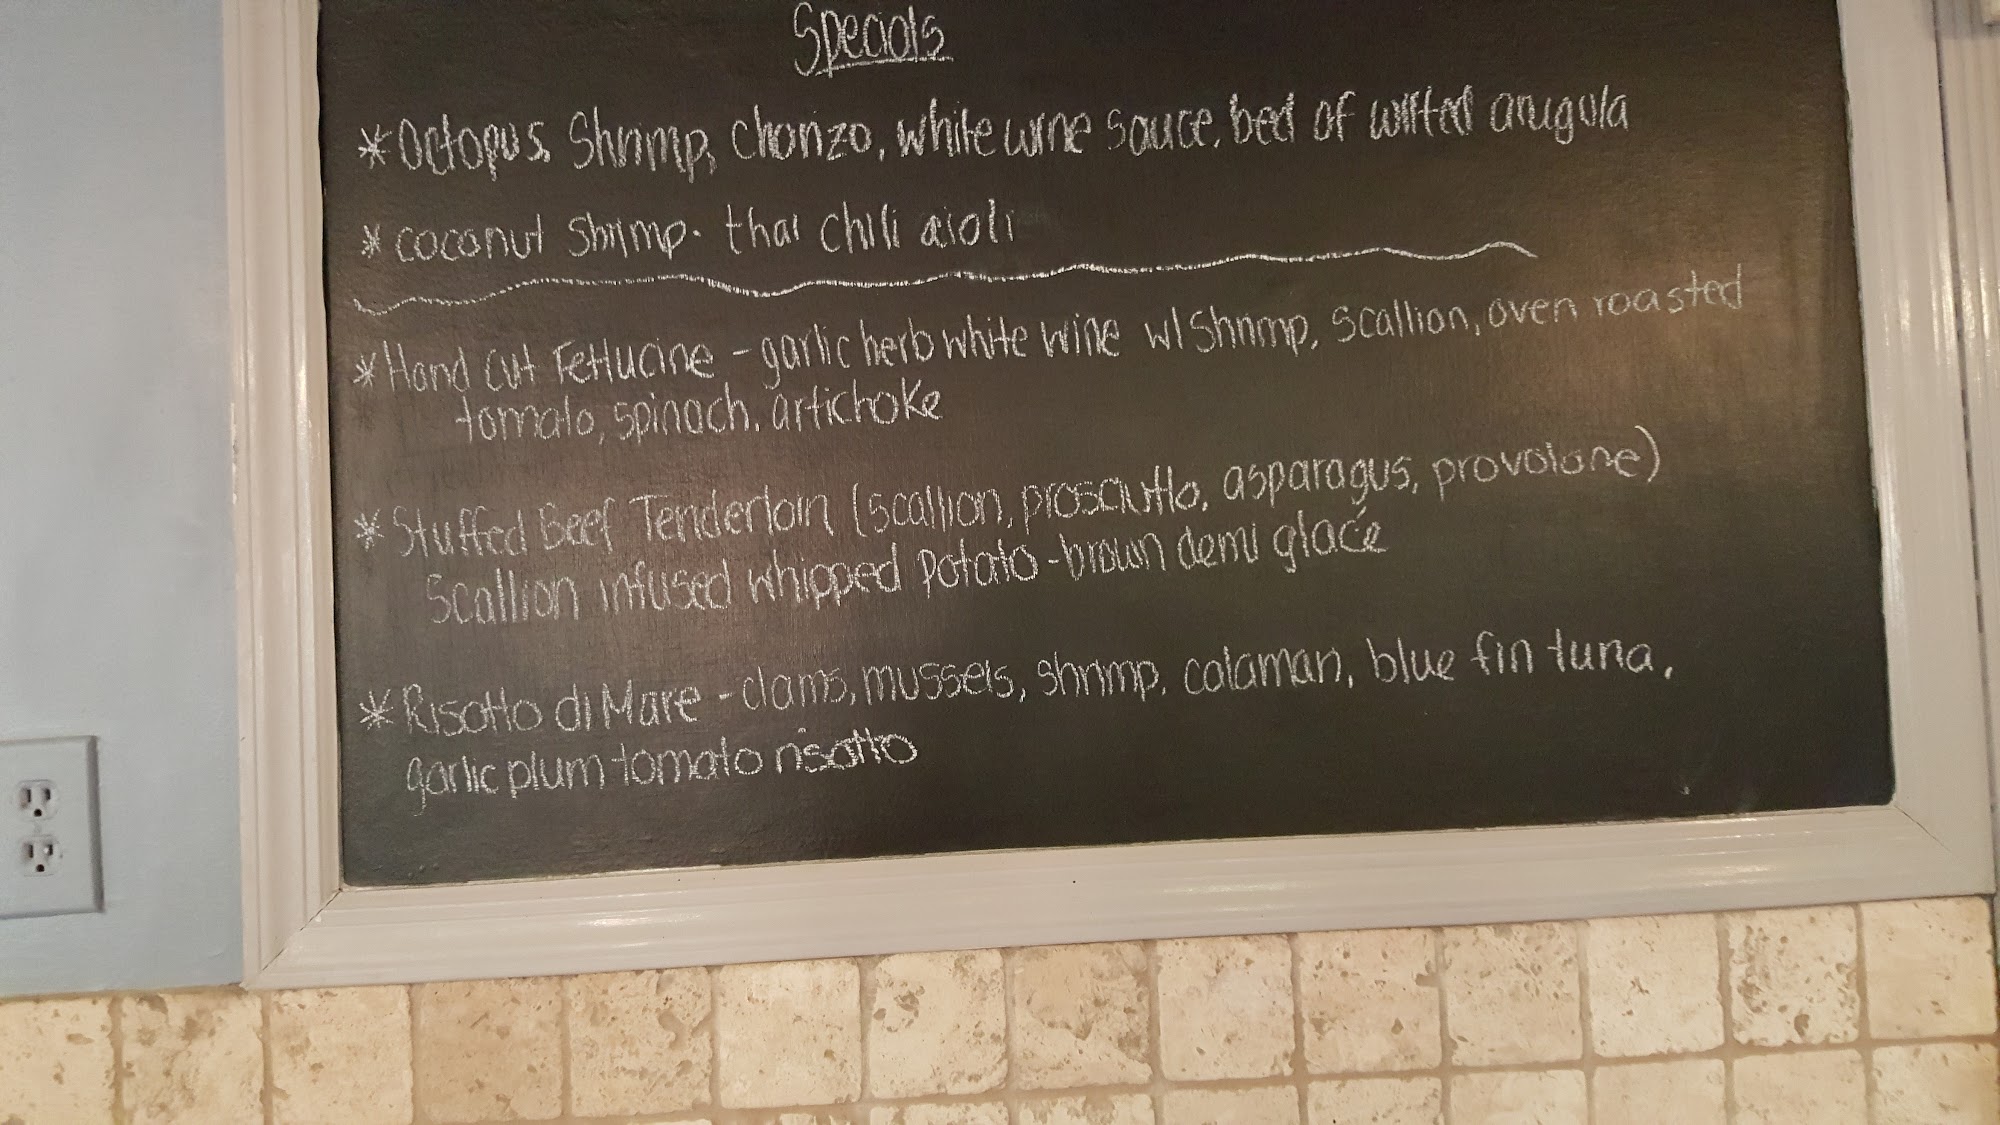 Specials
*Octopus, Shrimp, chorizo, white wine sauce, bed of wilted arugula
*coconut shrimp. thai chili aioli
*Hand cut Fettucine - garlic herb white wine w/ Shrimp, scallion, oven roasted
tomato, spinach, artichoke
*Stuffed Beef Tenderloin (scallion, prosciutto, asparagus, provolone)
Scallion infused whipped potato - brown demi glacé
*Risotto di Mare - clams, mussels, shrimp, calamari, blue fin tuna,
garlic plum tomato risotto